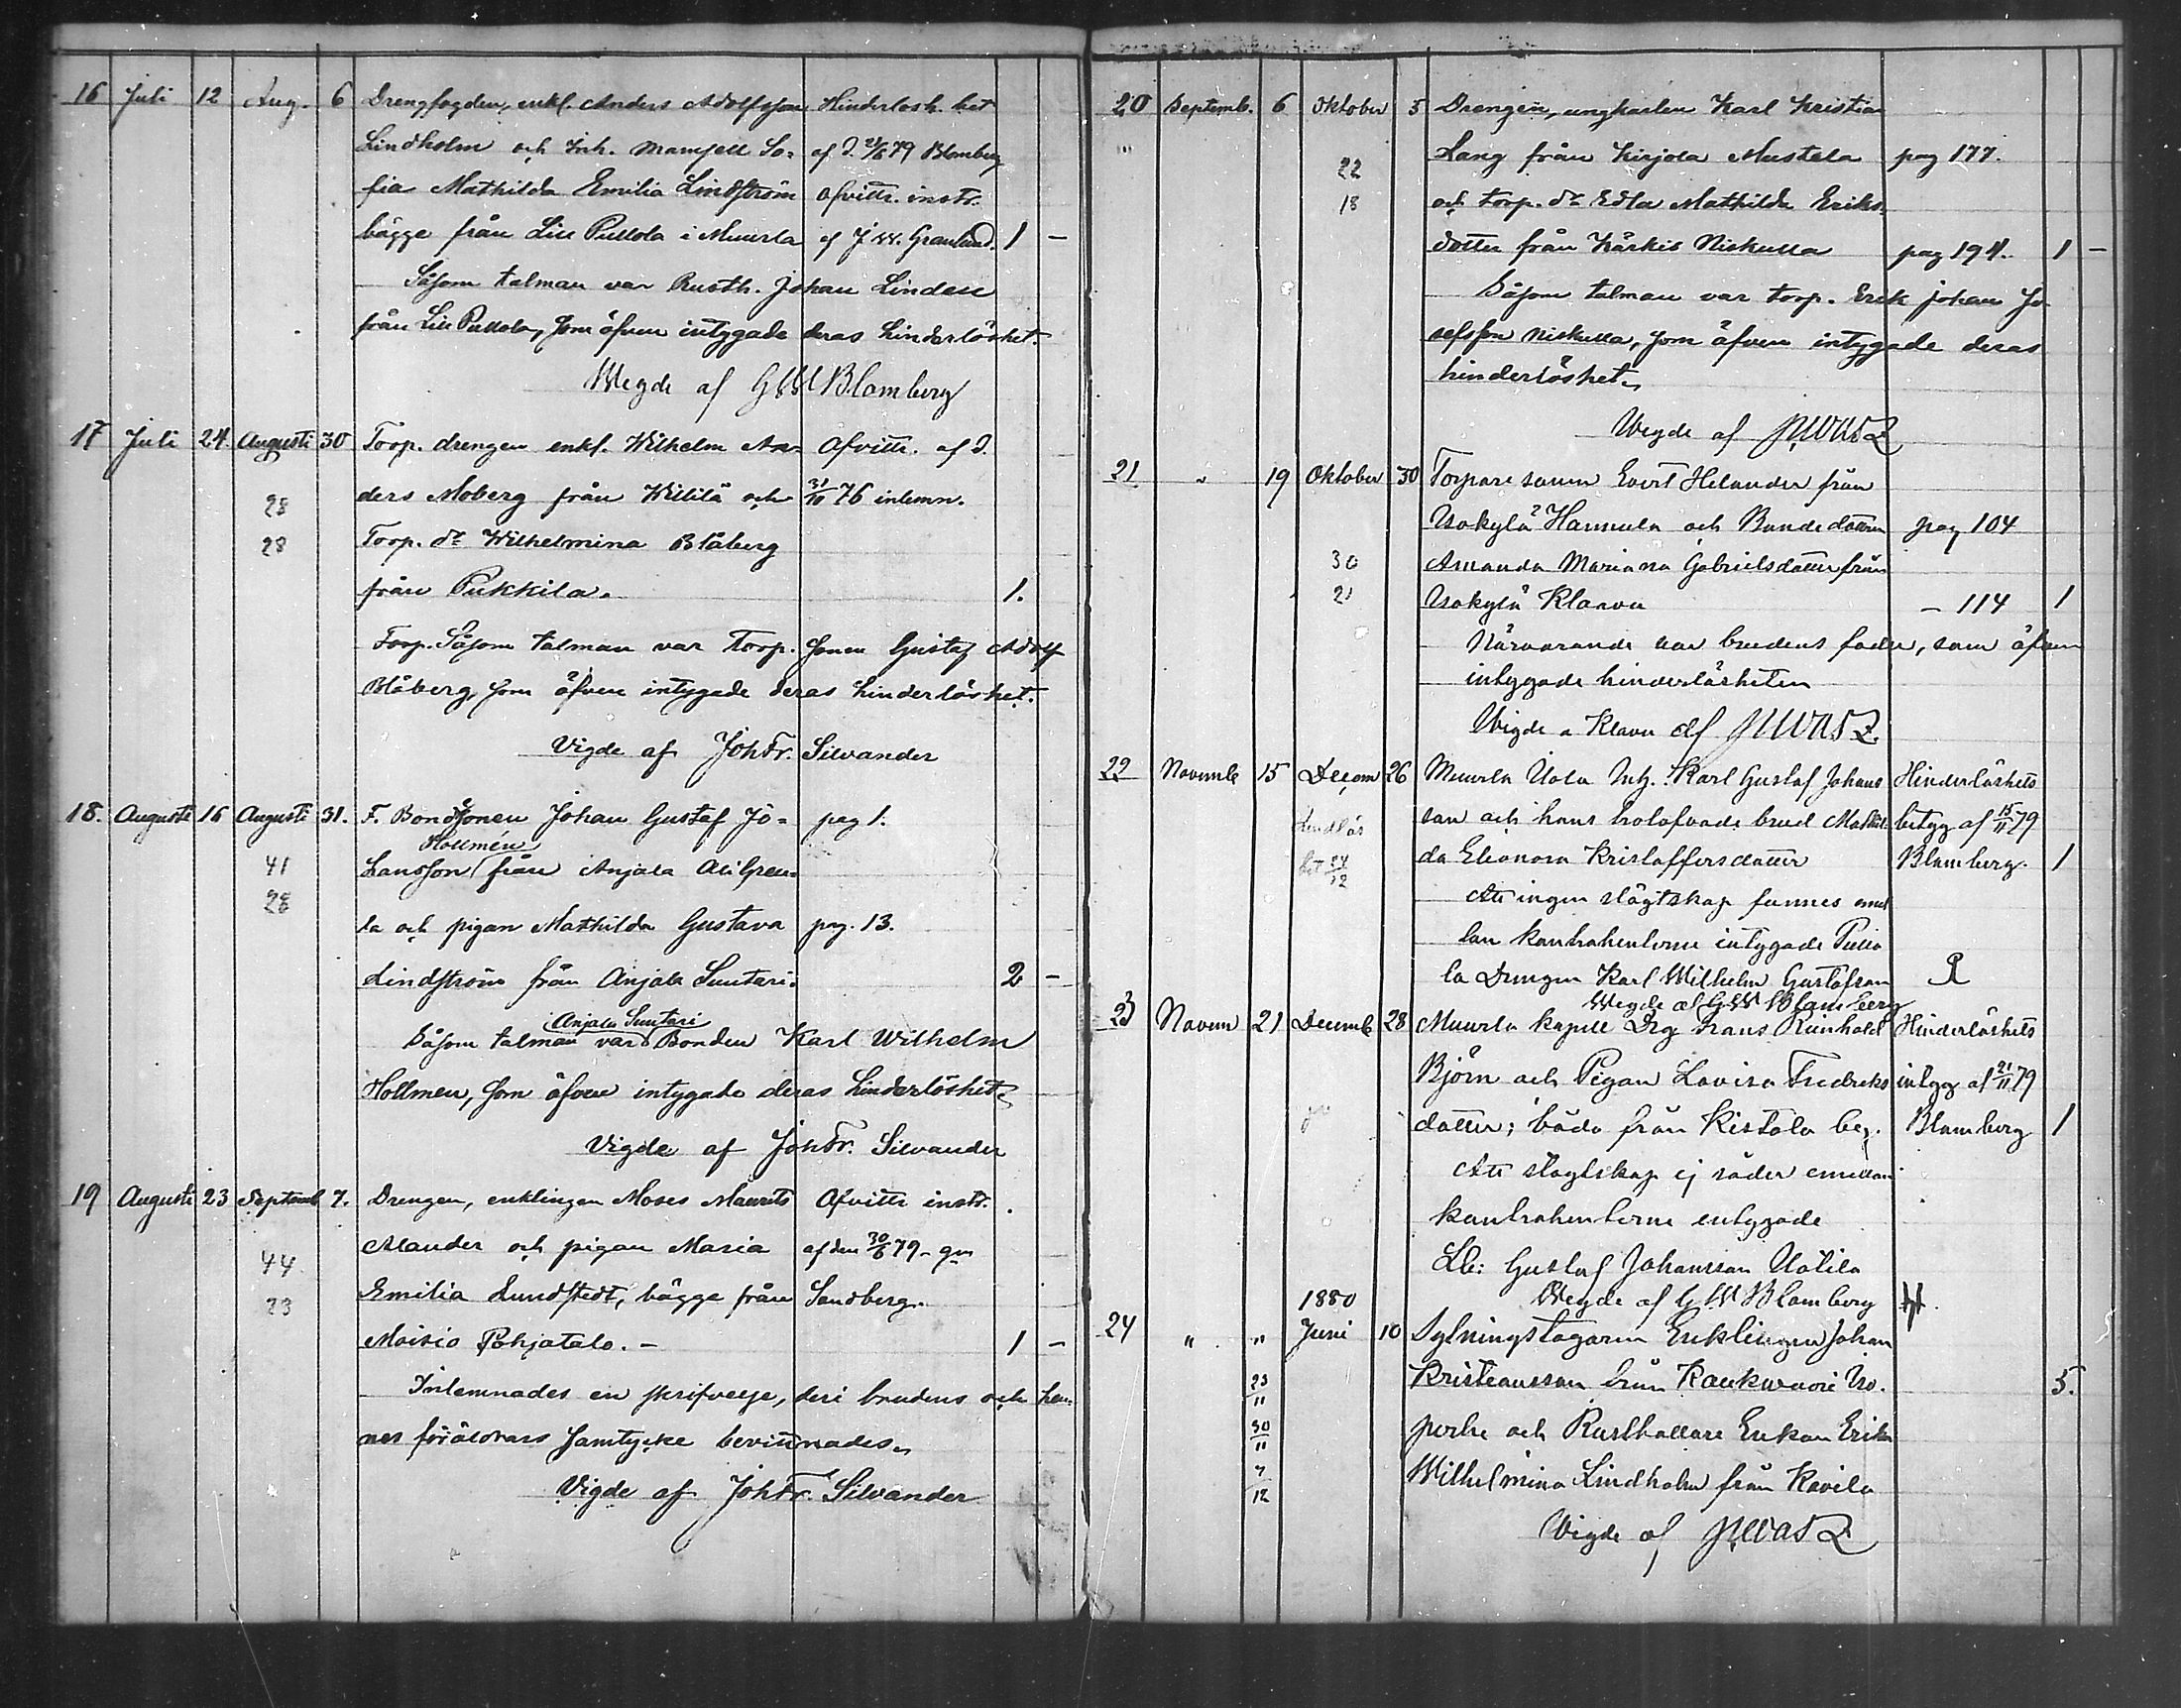 16 Juli 12 Aug. 6 Drengfogden, enkl. Anders Adolfsson Hinderlösh. bet
Lindholm och Inh. Mamsell So- af d. 21/6 79 Blomberg
fia Mathilda Emilia Lindström Afvittr. instr.
bägge från Lill Pullola i Muurla af J. W. Granlund. 1 –
Såsom talman var Rusth. Johan Lindell
från Lill Pullola, som äfven intygade deras hinderlöshet.
Wegde af GW Blomberg
17 Juli 24. Augusti 30 Torp. drengen enkl. Wilhelm An- Afvittr. af d.
28 ders Moberg från Willilä och 31/10 76 inlemn.
28 Torp. dr Wilhelmina Blåberg
från Pukkila. 1.
Torp. Såsom talman var Torp. sonen Gustaf Adolf
Blåberg, som äfven intygade deras hinderlöshet.
Vigde af Joh. Fr. Silvander
18. Augusti 16 Augusti 31. F. Bondesonen Johan Gustaf Jo- pag 1.
Hollmén
41 hansson från Anjala Ali Gren-
28
la och pigan Mathilda Gustava pag. 13.
Lindström från Anjala Suutari. 2 –
Anjala Suutari
Såsom talman var Bonden Karl Wilhelm
Hollmen, som äfven intygade deras hinderlöshet.
Vigde af Joh. Fr. Silvander
19 Augusti 23 Septemb 7. Drengen, enklingen Moses Maurits Afvittr instr.
44 Alander och pigan Maria af den 30/6 79 – gm
23 Emilia Lundstedt, bägge från Sandberg.
Moisio Pohjatalo. – 1 –
Inlemnades en skrifvelse, deri brudens och hen-
nes föräldrars samtycke bevittnades.
Vigde af Joh. Fr. Silvander
20 Septemb. 6 Oktober 5 Drengen, ungkarlen Karl Kristian
22 Lang från Kirjola Mustela pag 177.
18 och torp. dr Edla Mathilda Eriks-
dotter från Kärkis Niskulla pag 194. 1 –
Såsom talman var torp. Erik Johan Jo-
sefsson Niskulla, som äfven intygade deras
hinderlöshet.
Wegde af
21 " 19 Oktober 30 Torpare sonen Evert Helander från
Isokylä Hannula och Bondedottren pag 104
30 Amanda Mariana Gabrielsdotter från
21 Isokylä Klaava – 114 1
Närvarande var brudens fader, som äfven
intygade hinderlösheten
Wigde a Klava af
22 Novemb 15 Decem 26 Muurla Uola Inh. Karl Gustaf Johans Hinderlöshets
son och hans trolofvade brud Mathil- betyg af 15/11 79
24/12 da Eleonora Kristoffersdotter Blomberg. 1
Att ingen slägtskap funnes emel
lan kontrahenterne intygade Pullo
la Drengen Karl Wilhelm Gustafson
Wegde af GW Blomberg
23 Novem 21 Decemb 28 Muurla kapell Drg Frans Reinhold Hinderlöshets
Björn och Pigan Lovisa Fredriks intyg af 21/11 79
dotter; båda från Ristola by. Blomberg 1
Att slägtskap ej råder emellan
kontrahenterne intygade
Gustaf Johansson Uotila
1880 Wegde af GW Blomberg
24 " " Juni 10 Sytningstagaren Enklingen Johan
23/11 Kristiansson från Kaukwuori Iso- 5.
30/11 perhe och Rusthållare Enkan Erika
7/12 Wilhelmina Lindholm från Kavila
Wigde af